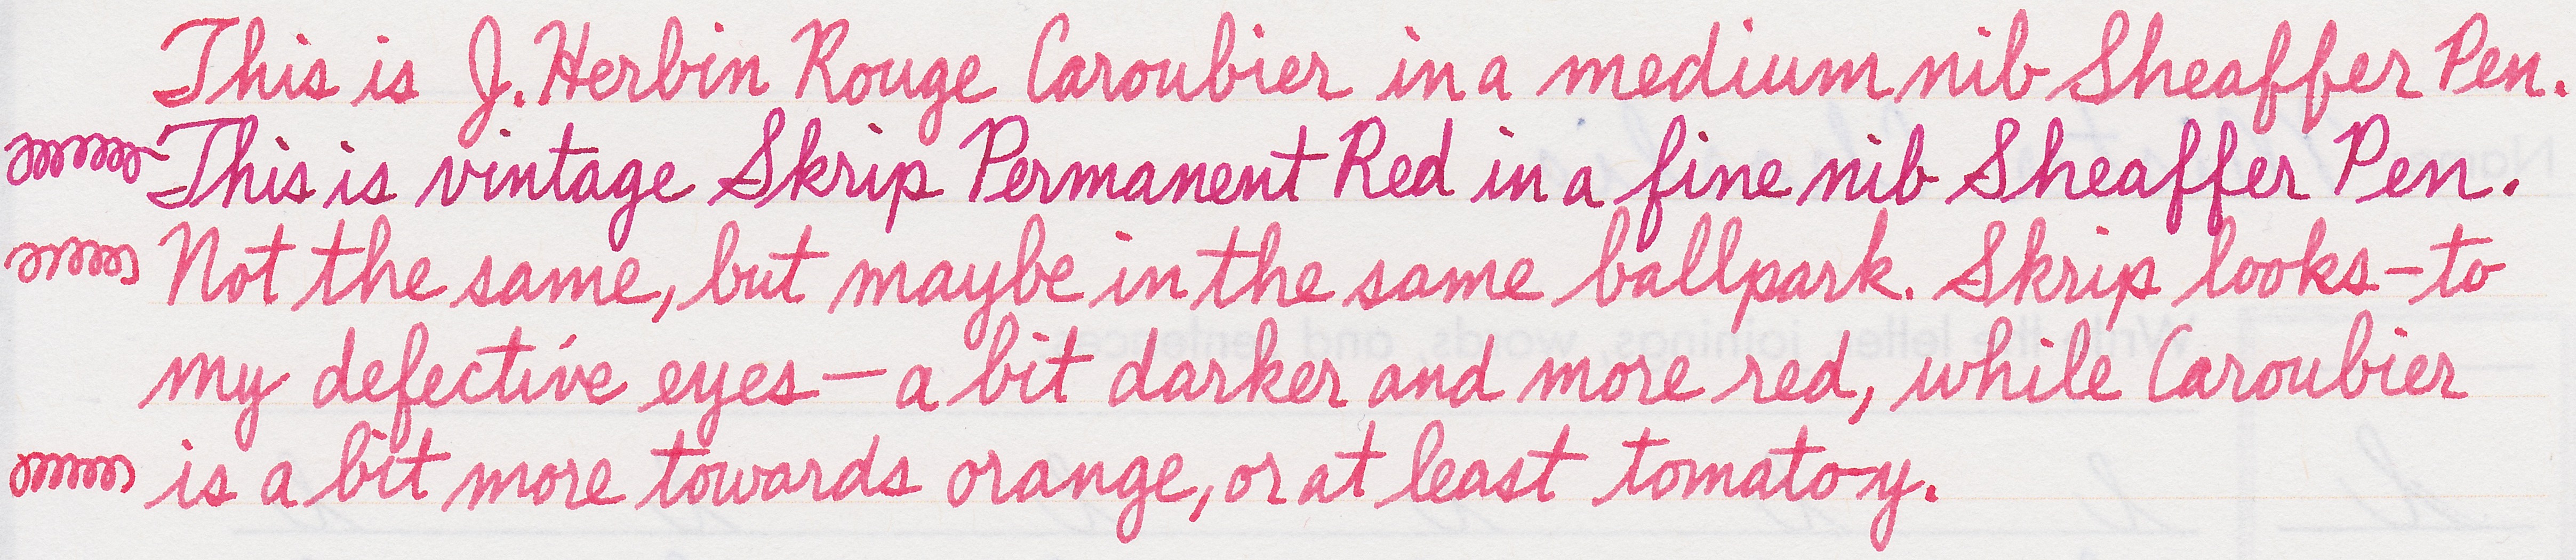 This is J. Herbin Rouge Caroubier in a medium nib Sheaffer Pen.
This is vintage Skrip Permanent Red in a fine nib Sheaffer Pen.
Not the same, but maybe in the same ballpark. Skrip looks—to
my defective eyes—a bit darker and more red, while Caroubier
is a bit more towards orange, or at least tomato-y.